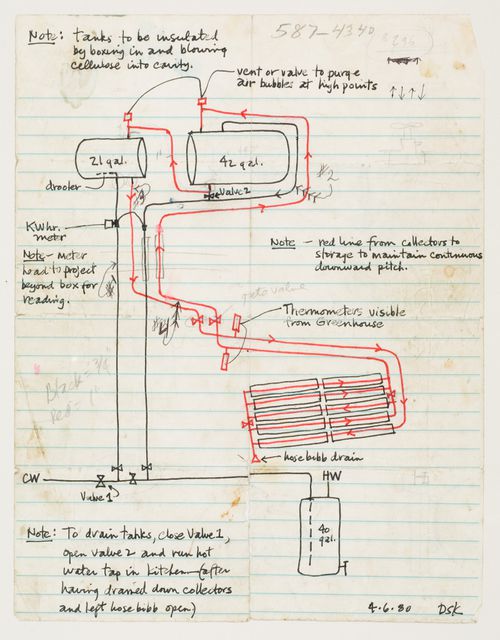 587-4340
Note: Tanks to be insulated
by boxing in and blowing
cellulose into cavity.
vent or valve to purge
air bubbles at high points
21 gal.
42 gal.
drooler
Valve 2
#2
KWhr.
meter
Note - meter
head to project
beyond box for
reading.
Note - red line from collectors to
storage to maintain continuous
downward pitch.
gate valve
Thermometers visible
from Greenhouse
#4
Black = 3/4
Red = 1"
hose bibb drain
CW
Valve 1
HW
40
gal.
Note: To drain tanks, close Valve 1,
open valve 2 and run hot
water tap in kitchen (after
having drained down collectors
and left hose bibb open)
4-6-80 DSK